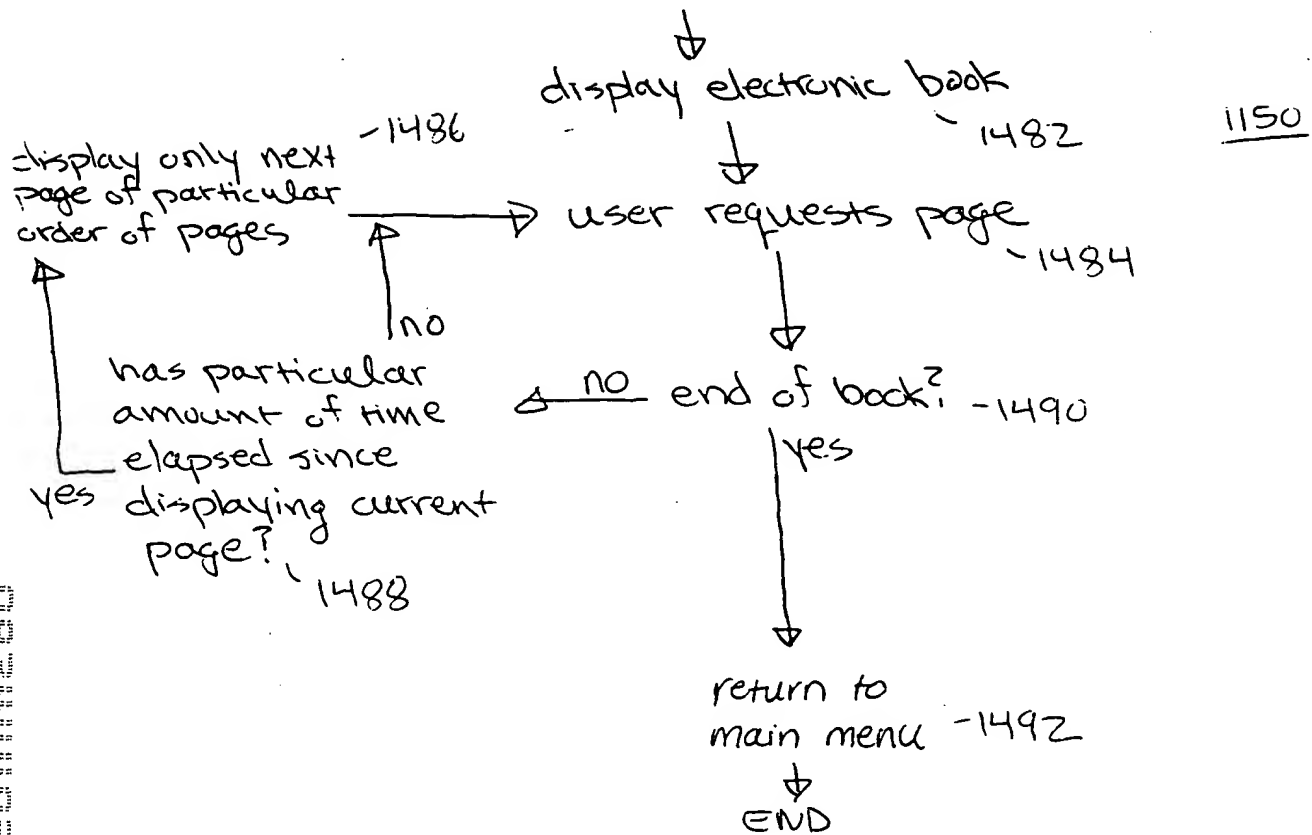 display electronic book
1482
1150
display only next
page of particular
order of pages
-1486
user requests page
-1484
no
has particular
amount of time
elapsed since
displaying current
page?
1488
yes
no
end of book? -1490
yes
return to
main menu -1492
END